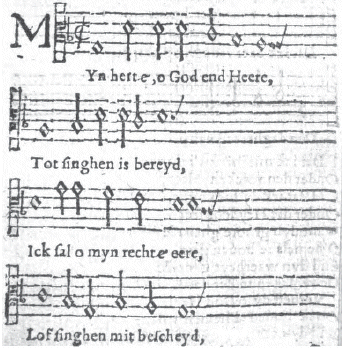 MYn herte, o God end Heere,
Tot singhen is bereyd,
Ick sal o myn rechte eere,
Lof singhen mit bescheyd,